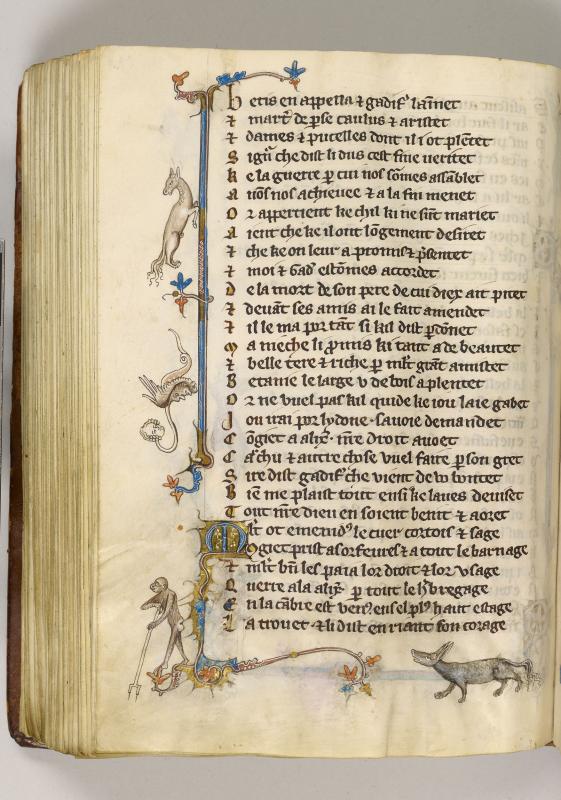 h etis en appella & gadif' lainnet
& mart' de pse caulus & aristet
& dames & pucelles dont il i ot plētet
S ign' che dist li dus cest fine veritet
k e la guerre p cui nos somes assāblet
A uōs nos achieuee & a la fin menet
O r appertient ke chil ki ne sūt mariet
A ient che ke il ont lōgement desiret
& che ke on leur a promis & p̄sentet
& moi & Gad' estōmes accordet
D e la mort de son pere de cui diex ait pitet
& deuāt ses amis ai le fait amendet
& il le ma por tāt si kil dist pdōnet
M a nieche li pmis ki tant a de beautet
& belle tere & riche p mlt grāt amistet
B etanie le large v de bois a plentet
O r ne vuel pas kil quide ke iou laie gabet
J ou irai por lydone sauoie demandet
C ōgiet a alix' nr̄e droit auoet
C a chu & autre chose vuel faire p son gret
S ire dist gadif' che vient de vo bontet
B iē me plaist tout ensi ke laues deuiset
T out nr̄e dieu en soient benit & aoret
M lt ot emenid' le cuer cortois & sage
C ogiet prist as orfeures & a tout le barnage
& mlt bn̄ les paia lor droit & lor vsage
Q uerre ala alix' p tout le hb'regage
E n la cābre est ven' en sel pl' haut estage
L a trouet & li dist en riant son corage